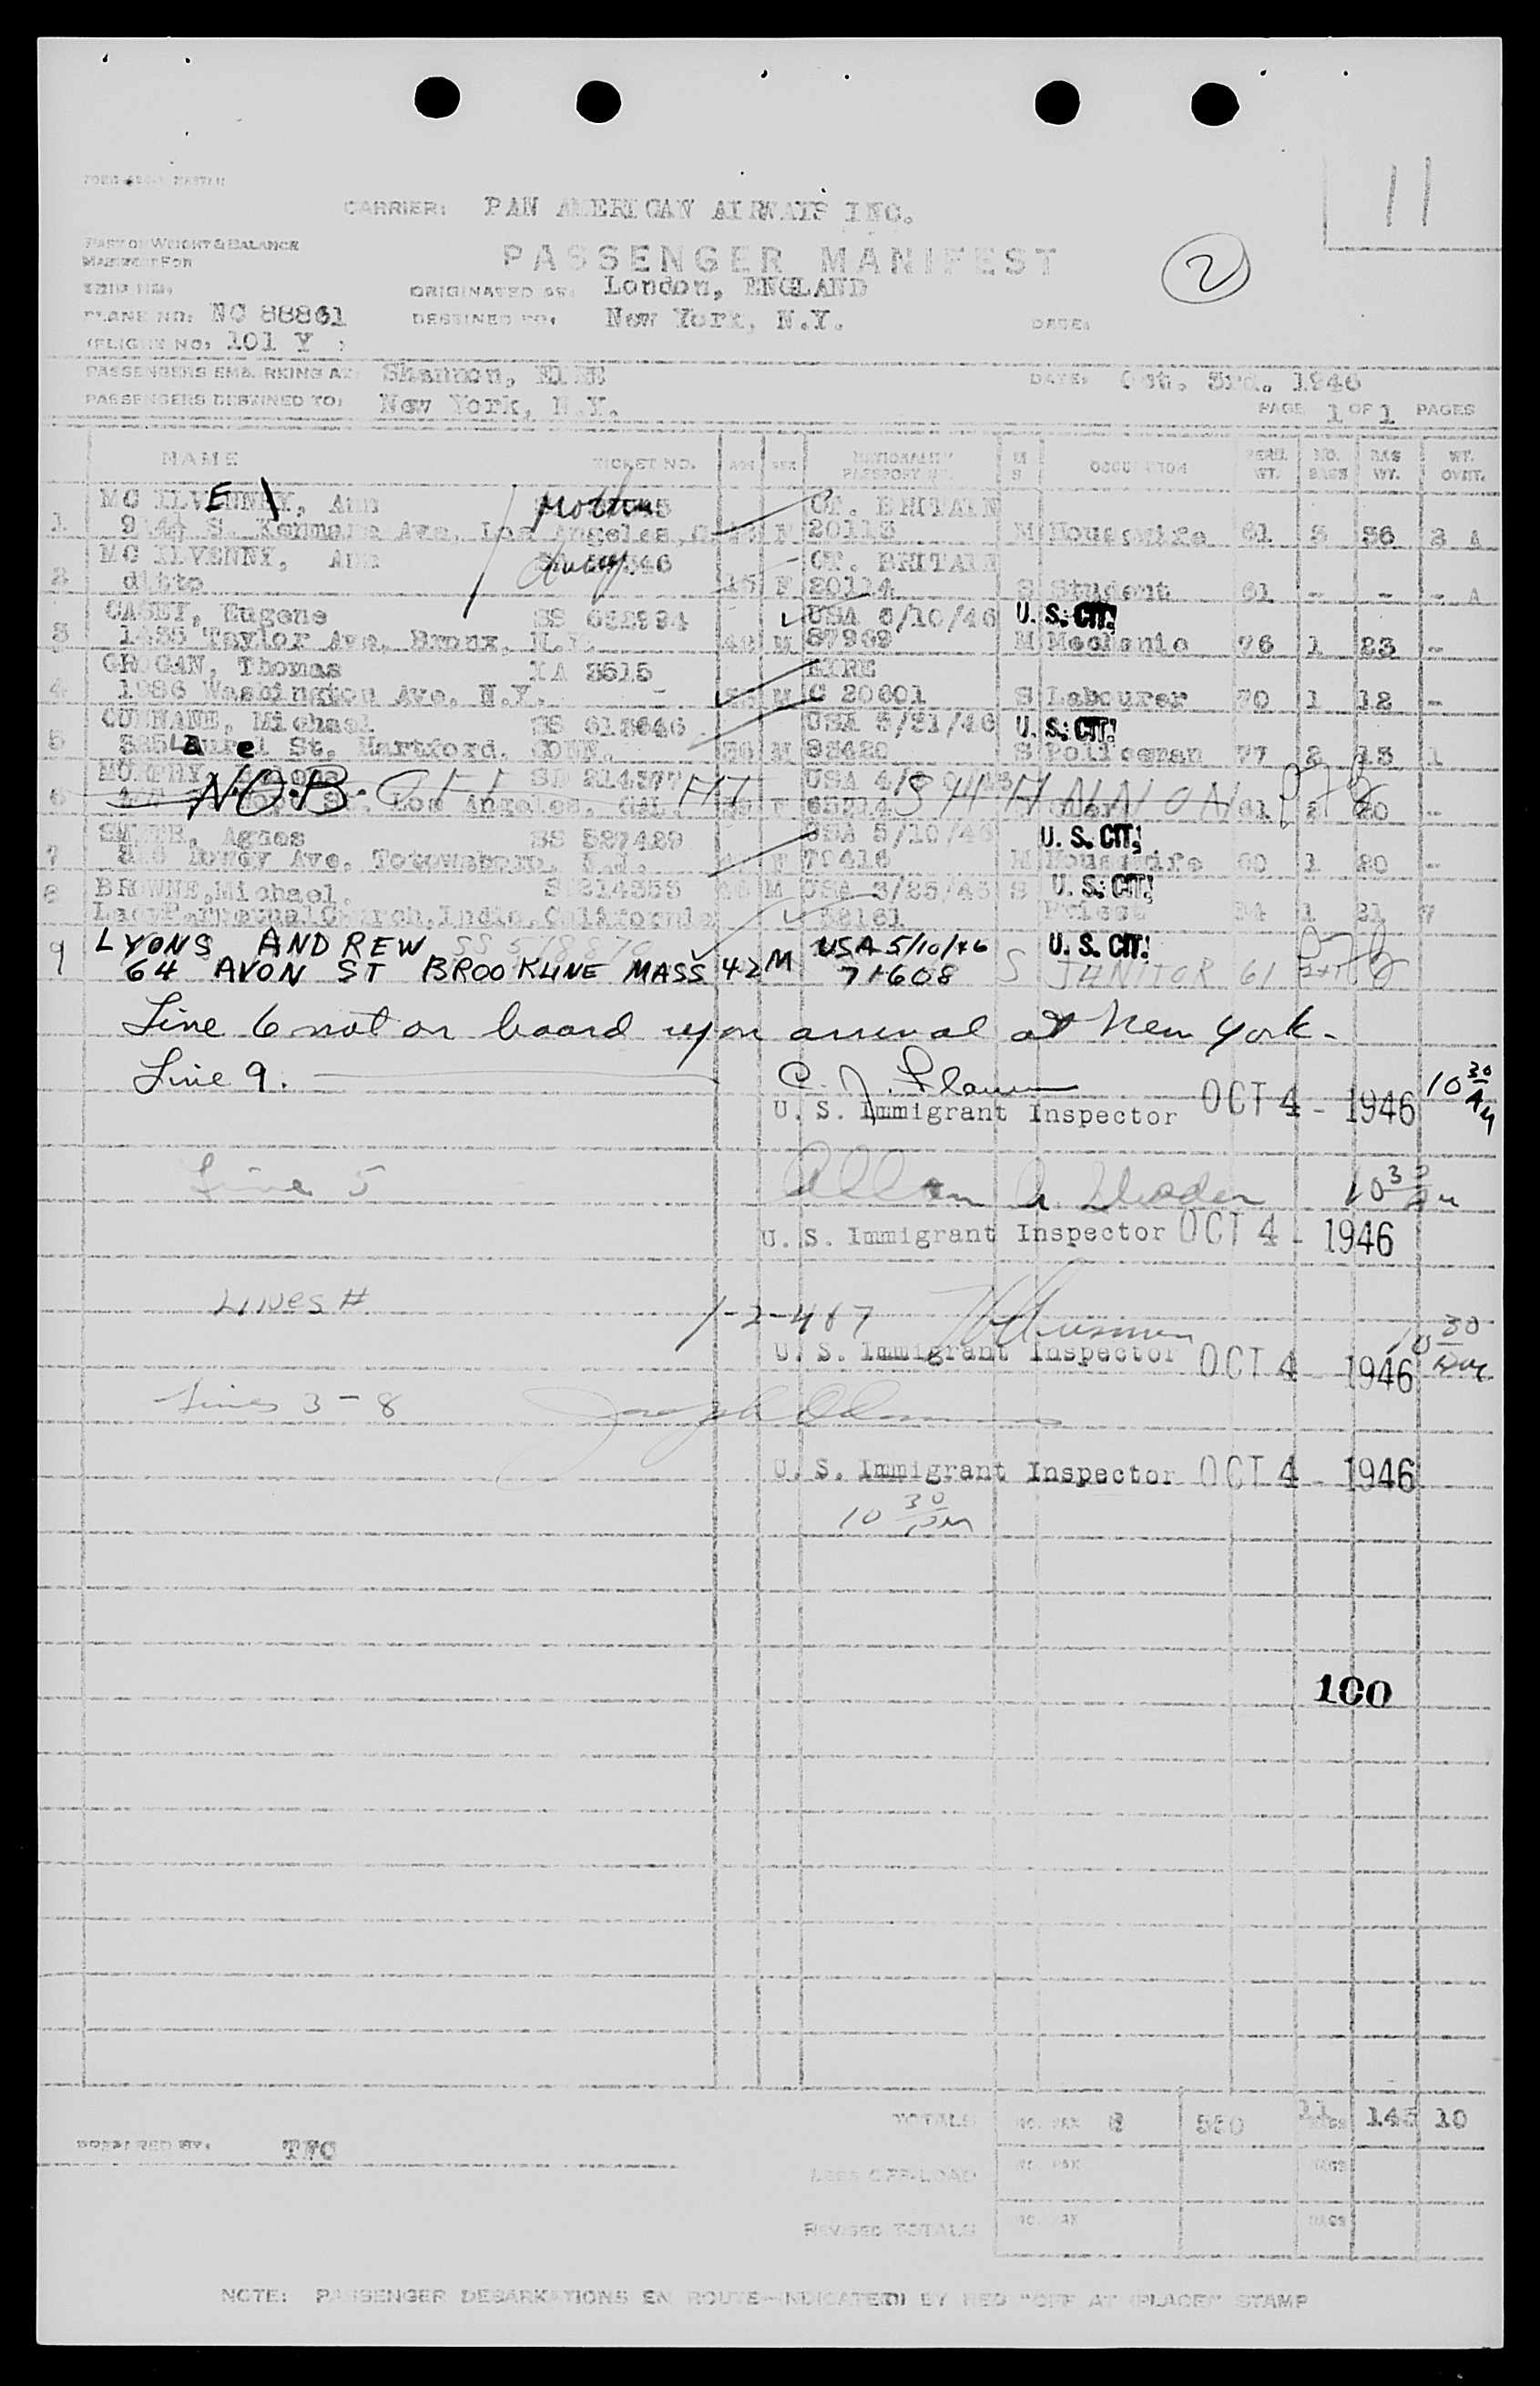 11
CARRIER: PAN AMERICAN AIRWAYS INC.
PART OF WEIGHT & BALANCE
MANIFEST FOR
PASSENGER MANIFEST
2
TRIP NO:
ORIGINATED AT: London, ENGLAND
PLANE NO: NC 88861
DESTINED TO: New York, N.Y.
DATE:
(FLIGHT NO: 101 Y )
PASSENGERS EMBARKING AT: Shannon, EIRE
DATE: Oct. 3rd. 1946
PASSENGERS DESTINED TO: New York, N.Y.
PAGE 1 OF 1 PAGES
NAME TICKET NO. AGE SEX NATIONALITY PASSPORT NO. M S OCCUPATION PERS. WT. NO. BAGS BAG WT. WT. OVWT.
MC ILVENNEY, Ann Mother GT. BRITAIN
1 S. Kenmare Ave, Los Angeles, F 20113 M Housewife 61 3 56 3 A
MC ILVENNY, Ann GT. BRITAIN
2 ditto 15 F 20114 S Student 61 - - - A
CASEY, Eugene SS 632994 USA 5/10/46 U. S. CIT.
3 1435 Taylor Ave, Bronx, N.Y. 42 M 87969 M Mechanic 76 1 23 -
GROGAN, Thomas XA 3515 EIRE
4 1986 Washington Ave, N.Y. - M C 20601 S Labourer 70 1 12 -
CUNNANE, Michael SS 613646 USA 5/21/46 U. S. CIT.
5 Laurel St. Hartford, CONN. M 93420 S Policeman 77 2 13 1
MURPHY, SD 214377 USA
6 N.O.B. OFF Los Angeles, CAL. AT F SHANNON 61 2 20 -
Agnes SS 527429 USA 5/10/46 U. S. CIT.
7 Ave, Totowaboro, N.J. F 79416 M Housewife 60 1 20 -
8 BROWNE, Michael. S 214355 M USA 3/25/46 S U. S. CIT.
Church, Indio, California 58161 Priest 84 1 21 7
9 LYONS, ANDREW USA 5/10/46 U. S. CIT.
64 AVON ST BROOKLINE MASS 42 M 71608 S JANITOR 61
Line 6 not on board upon arrival at New York.
Line 9.
U. S. Immigrant Inspector OCT 4 - 1946 10 30 AM
Line 5 10 30 AM
U. S. Immigrant Inspector OCT 4 - 1946
LINES # 1-2-4&7
U. S. Immigrant Inspector OCT 4 - 1946 10 30 AM
Lines 3 - 8
U. S. Immigrant Inspector OCT 4 - 1946
10 30 AM
100
TOTALS NO. PAX 8 560 11 BAGS 145 10
PREPARED BY: TFC
LESS OFF-LOAD NO. PAX BAGS
REVISED TOTALS NO. PAX BAGS
NOTE: PASSENGER DEBARKATIONS EN ROUTE INDICATED BY RED "OFF AT (PLACE)" STAMP